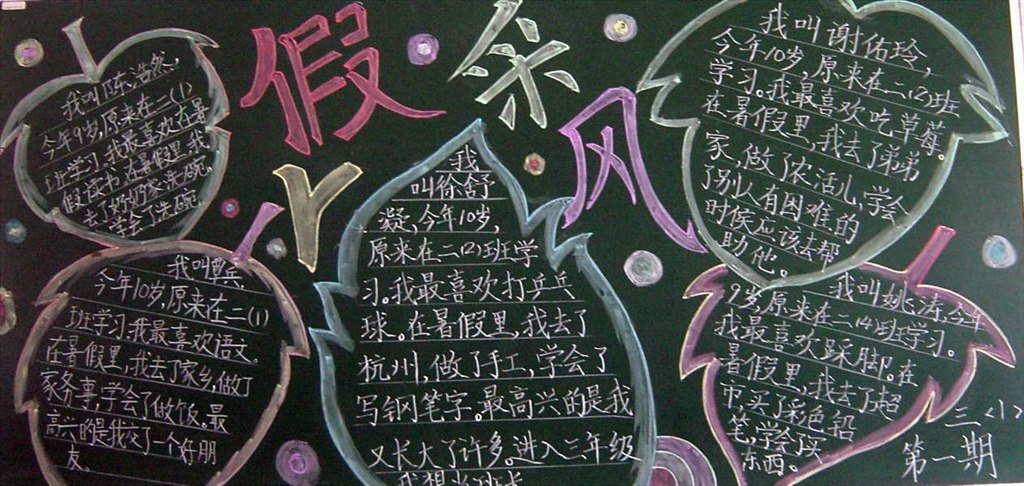 假
余
风
我叫陈浩然,
今年9岁,原来在二(1)
班学习,我最喜欢在暑
假读书,在暑假里,我
去了奶奶家洗碗,
学会了洗碗
我叫谢佑玲,
今年10岁,原来在二(2)班
学习。我最喜欢吃草莓。
在暑假里,我去了弟弟
家,做了农活儿,学会
了别人有困难的
时候应该去帮
助他。
我
叫徐舒
凝,今年10岁,
原来在二(2)班学
习。我最喜欢打乒乓
球。在暑假里,我去了
杭州,做了手工,学会了
写钢笔字。最高兴的是我
又长大了许多。进入三年级
我想当班长
我叫冀兵
今年10岁,原来在二(1)
班学习,我最喜欢语文。
在暑假里,我去了家乡,做了
家务事,学会了做饭。最
高兴的是我交了一个好朋
友。
我叫姚涛,今年
9岁,原来在二(4)班学习。
我最喜欢踩脚。在
暑假里,我去了超
市,买了彩色铅
笔,学会了买
东西。
三<1>
第一期